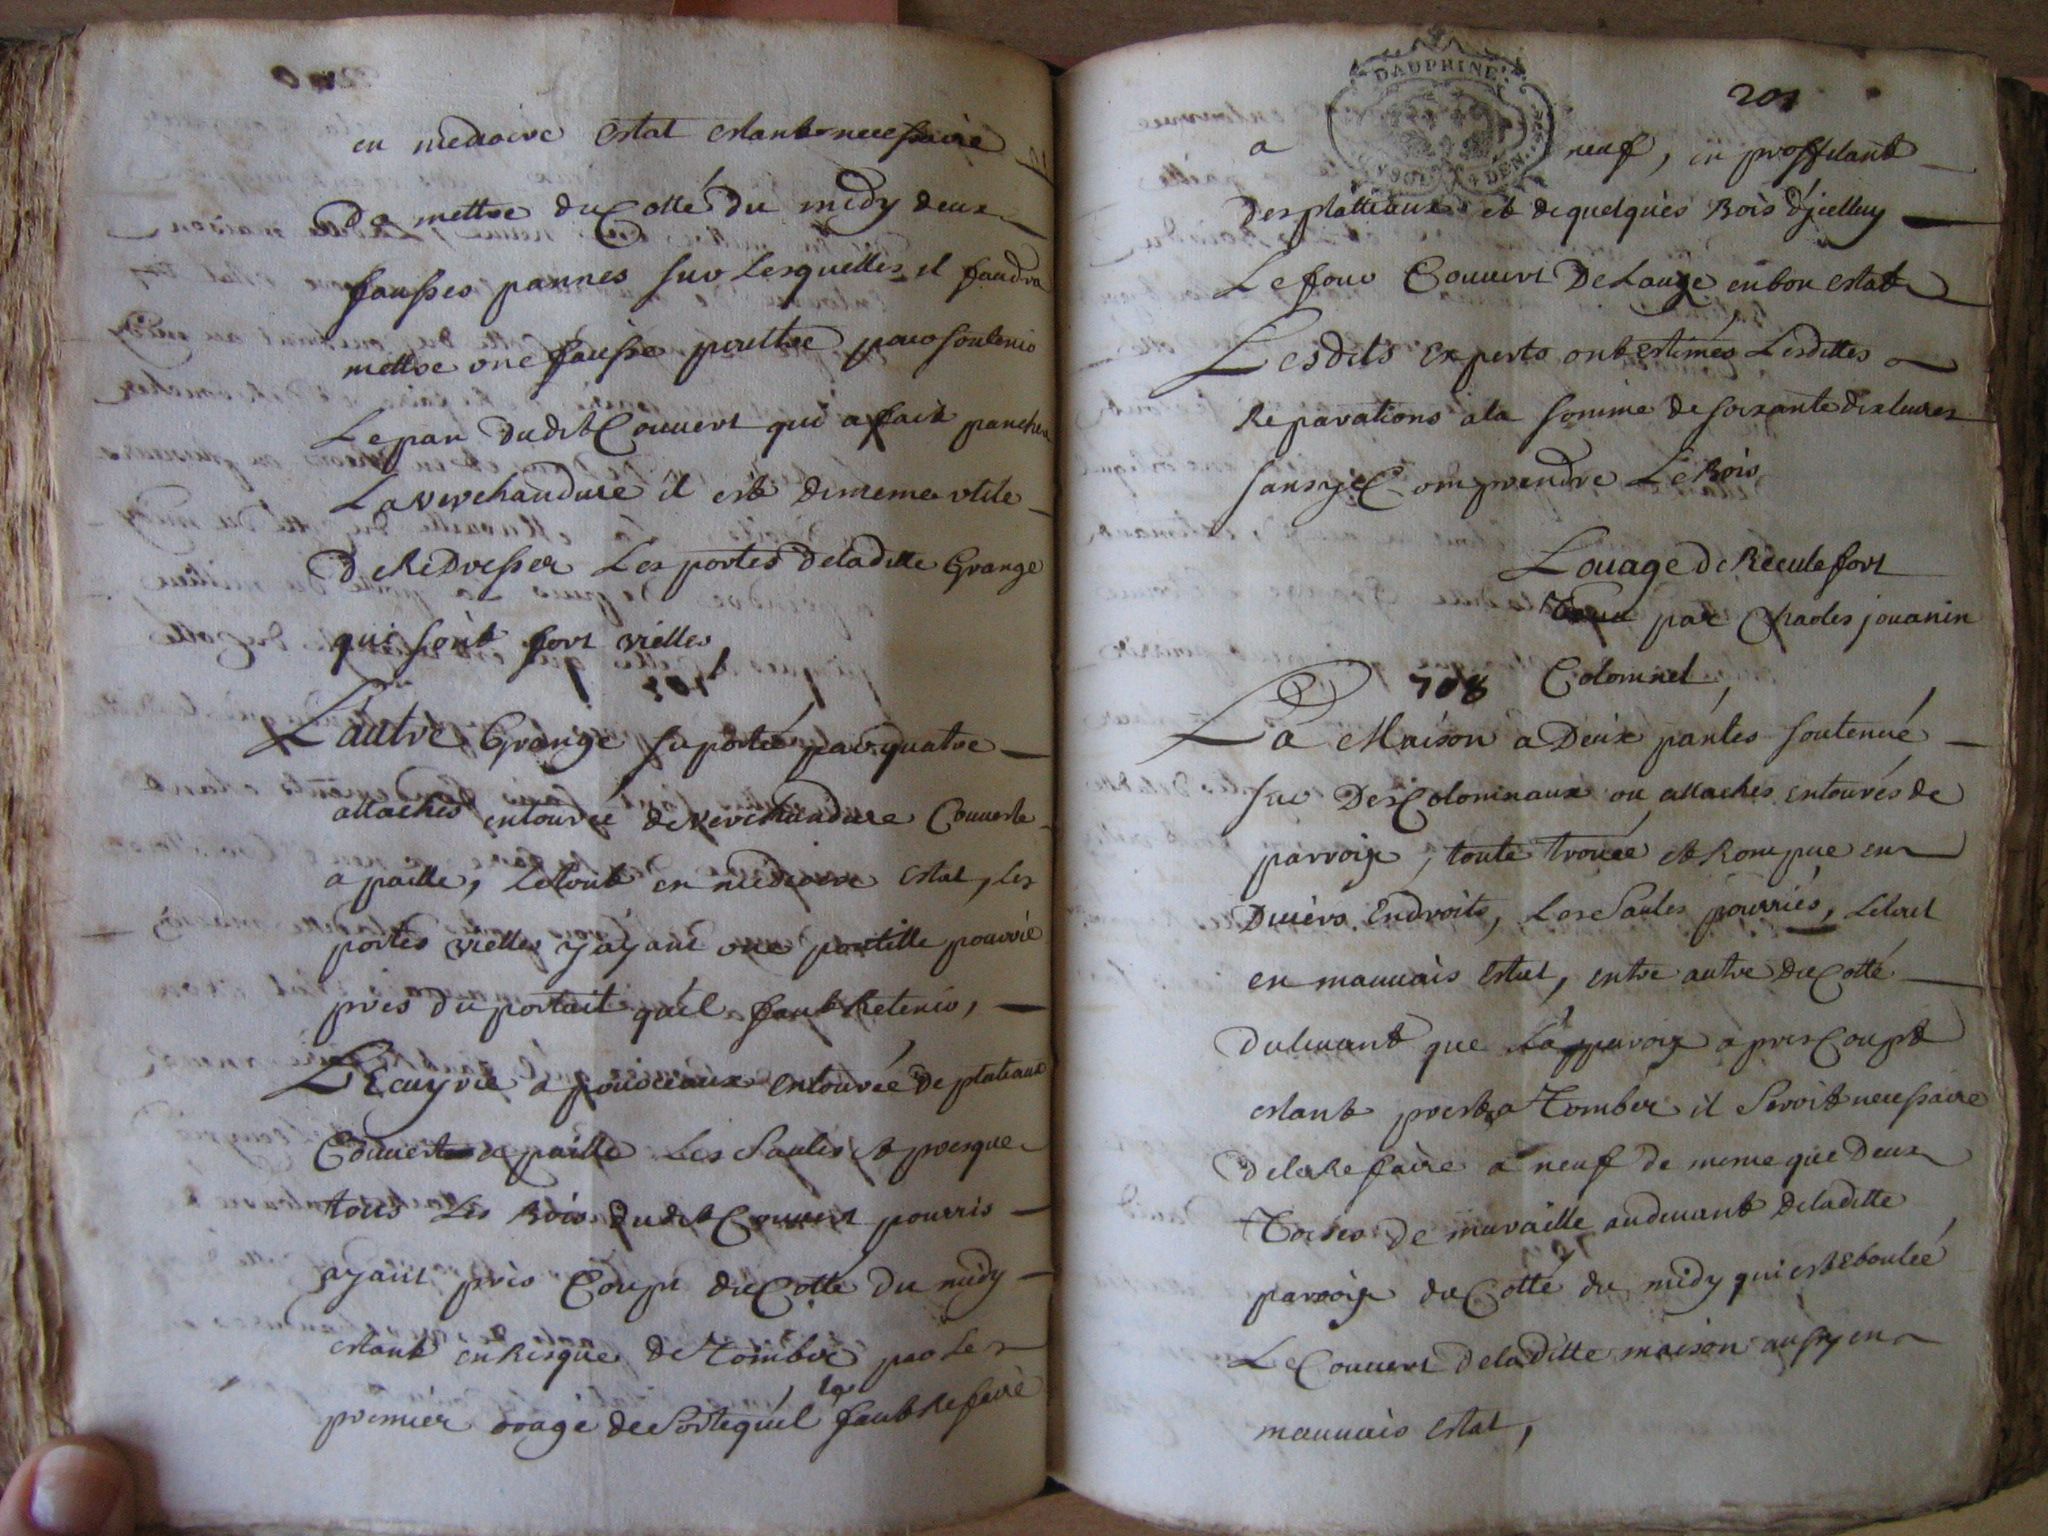 en mediocre estat estant necessaire
De mettre du Cotté du midy deux
fausses pannes sur Lesquelles il faudra
mettre une fausse pouttre pour soutenir
Le pan dudit Couvert qui a fait pancher
La verchandure il est de meme utile
De Redresser Les portes de la ditte Grange
qui sont fort vielles,
L'autre Grange suportée par quatre
attaches entourée de verchandure Couverte
a paille, Le tout en mediocre estat, les
portes vielles y ayant une portille pourrie
pres du portait qu'il faut Retenir,
L'Ecuyrie a pousieaux entourée de plateaux
Couverte a paille Les Saules et presque
tous Les Bois dudit Couvert pourris
ayant pris Coupt du Cotté du midy
estant en Risque de Tomber par le
premier orage de Sorte qu'il la faut Refaire
DAUPHINÉ
201
a neuf, en proffitant
Des platteaux et de quelques Bois d'jcelluy
Le four Couvert De Lauze en bon estat
Lesdits Experts ont Estimés Lesdittes
Reparations a la somme de soixante dix livres
sans y Comprendre Le Bois,
Louage de Reculefort
par Charles jouanin
708 Colominel,
La Maison a Deux pantes soutenüe
sur Des Colominaux ou attaches entourés de
parroix, toute trouée et Rompue en
Divers Endroits, Les Saules pourries, Le tout
en mauvais estat, entre autre du Cotté
du levant que La parroix a pris Coupt
estant preste a Tomber il Seroit necessaire
de la Refaire a neuf de meme que Deux
Toises de muraille au devant de la ditte
parroix du Cotté du midy qui est Eboulée
Le Couvert de la Ditte maison aussy en
mauvais estat,